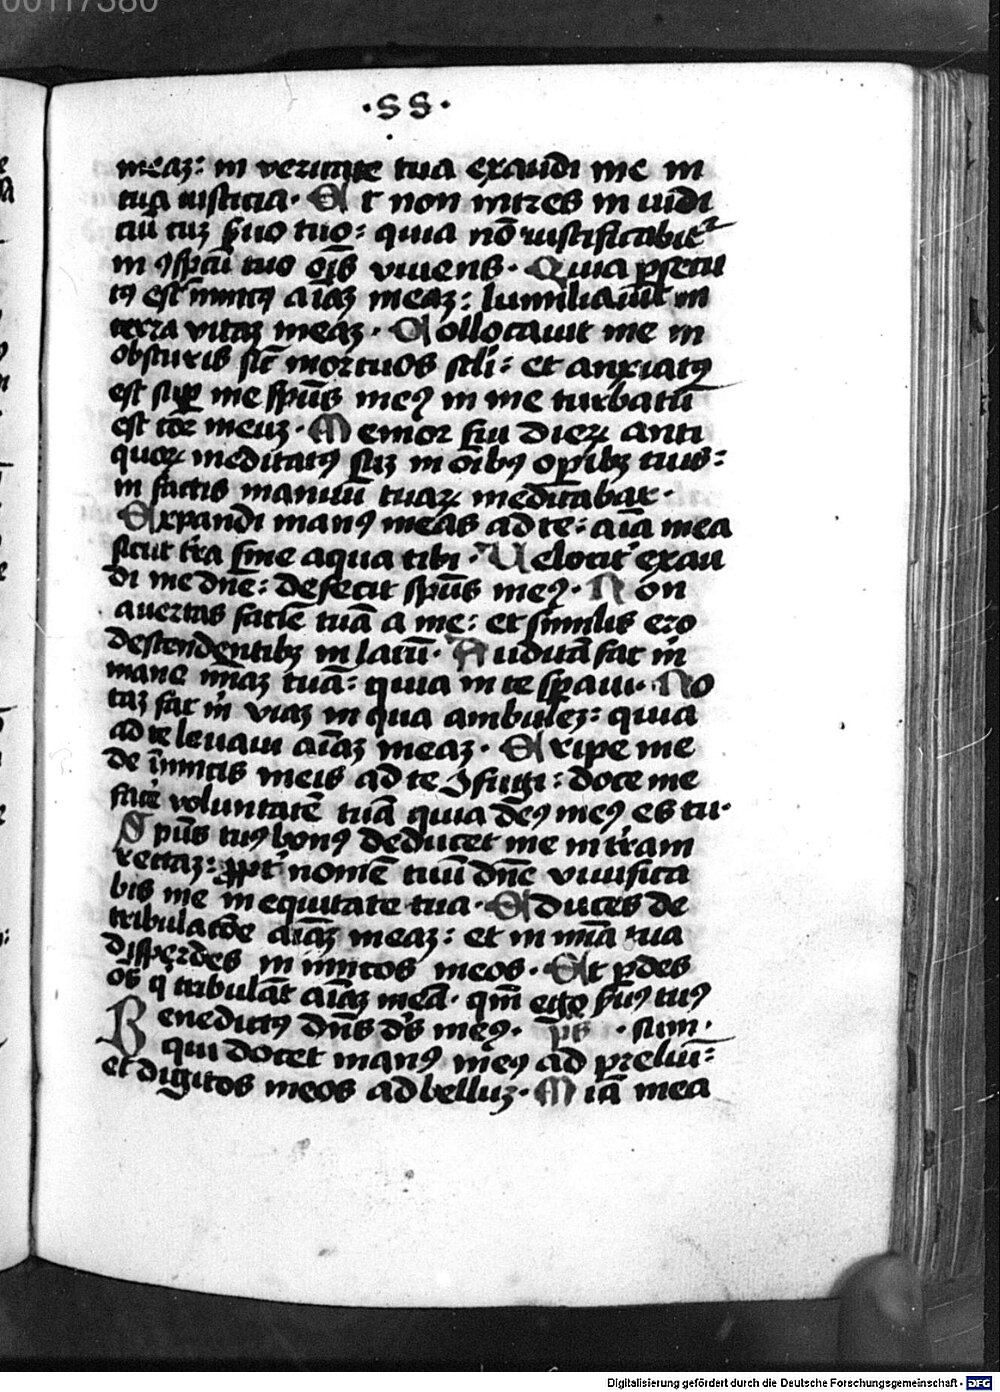 00117380
·SS·
meaz: in veritate tua exaudi me in
tua iusticia· Et non intres in iudi
ciū cuz ẜuo tuo: quia nō iustificabitᷣ
in ꝯspcū tuo oīs vivens· Quia ꝑsecu
tꝯ est inimicꝯ aīaz meaz: humiliavit in
terra vitaz meaz· Collocavit me in
obscuris sic̄ mortuos scli: et anxiatꝯ
est suꝑ me spūs meꝯ in me turbatū
est cor meuz· Memor fui dieꝝ anti
quoꝝ meditatꝯ suz in oībꝯ oꝑibz tuis:
in factis manuū tuaꝝ meditabar·
Expandi manꝯ meas ad te: aīa mea
sicut tr̄a sine aqua tibi· Velocit̉ exau
di me dn̄e: defecit spūs meꝯ· Non
avertas faciē tuā a me: et similis ero
descendentibz in lacū· Auditā fac m̄
mane mīaz tuā: quia in te sꝑavi· No
taz fac m̄ viaz in qua ambulez: quia
ad te levavi aīaz meaz· Eripe me
de inimicis meis ad te ꝯfugi: doce me
facē voluntatē tuā quia deꝯ meꝯ es tu·
Spūs tuꝯ bonꝯ deducet me in tr̄am
rectaz: ꝓpt̉ nomē tuū dn̄e vivifica
bis me in equitate tua· Educes de
tribulacōe aīaz meaz: et in mīa tua
disꝑdes inimicos meos· Et ꝑdes
oēs q̄ tribulāt aīaz meā· qm̄ ego ẜuꝯ tuꝯ
Benedictꝯ dn̄s ds̄ meꝯ· ps̄ · sum·
qui docet manꝯ meꝯ ad preliū:
et digitos meos ad belluz· Mīa mea
Digitalisierung gefördert durch die Deutsche Forschungsgemeinschaft - DFG